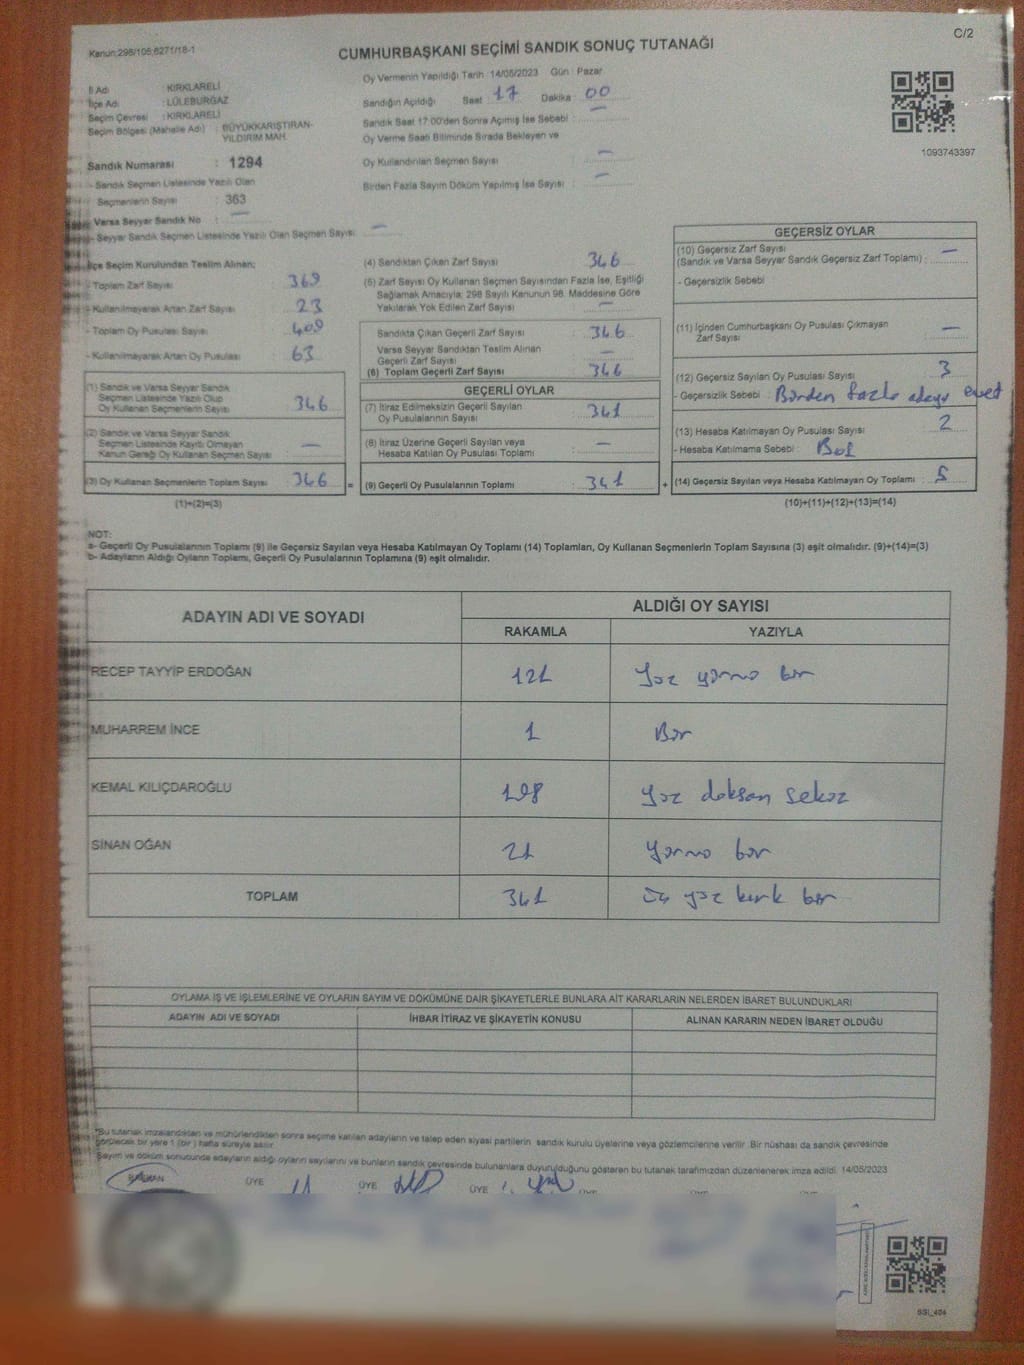 C/2
Kanun:298/105,6271/18-1
CUMHURBAŞKANI SEÇİMİ SANDIK SONUÇ TUTANAĞI
İl Adı : KIRKLARELİ
İlçe Adı : LÜLEBURGAZ
Seçim Çevresi : KIRKLARELİ
Seçim Bölgesi (Mahalle Adı) : BÜYÜKKARIŞTIRAN-
YILDIRIM MAH.
Sandık Numarası : 1294
- Sandık Seçmen Listesinde Yazılı Olan
Seçmenlerin Sayısı : 363
Varsa Seyyar Sandık No : —
- Seyyar Sandık Seçmen Listesinde Yazılı Olan Seçmen Sayısı : —
Oy Vermenin Yapıldığı Tarih 14/05/2023 Gün : Pazar
Sandığın Açıldığı Saat : 17 Dakika : 00
Sandık Saat 17:00'den Sonra Açımış İse Sebebi : —
Oy Verme Saati Bitiminde Sırada Bekleyen ve
Oy Kullandırılan Seçmen Sayısı : —
Birden Fazla Sayım Döküm Yapılmış İse Sayısı : —
1093743397
İlçe Seçim Kurulundan Teslim Alınan;
- Toplam Zarf Sayısı : 369
- Kullanılmayarak Artan Zarf Sayısı : 23
- Toplam Oy Pusulası Sayısı : 409
- Kullanılmayarak Artan Oy Pusulası : 63
(1) Sandık ve Varsa Seyyar Sandık
Seçmen Listesinde Yazılı Olup
Oy Kullanan Seçmenlerin Sayısı : 346
(2) Sandık ve Varsa Seyyar Sandık
Seçmen Listesinde Kayıtlı Olmayan
Kanun Gereği Oy Kullanan Seçmen Sayısı : —
(3) Oy Kullanan Seçmenlerin Toplam Sayısı : 346 =
(1)+(2)=(3)
(4) Sandıktan Çıkan Zarf Sayısı : 346
(5) Zarf Sayısı Oy Kullanan Seçmen Sayısından Fazla İse, Eşitliği
Sağlamak Amacıyla; 298 Sayılı Kanunun 98. Maddesine Göre
Yakılarak Yok Edilen Zarf Sayısı : —
Sandıkta Çıkan Geçerli Zarf Sayısı : 346
Varsa Seyyar Sandıktan Teslim Alınan
Geçerli Zarf Sayısı : —
(6) Toplam Geçerli Zarf Sayısı : 346
GEÇERLİ OYLAR
(7) İtiraz Edilmeksizin Geçerli Sayılan
Oy Pusulalarının Sayısı : 341
(8) İtiraz Üzerine Geçerli Sayılan veya
Hesaba Katılan Oy Pusulası Toplamı : —
(9) Geçerli Oy Pusulalarının Toplamı : 341 +
GEÇERSİZ OYLAR
(10) Geçersiz Zarf Sayısı
(Sandık ve Varsa Seyyar Sandık Geçersiz Zarf Toplamı) : —
- Geçersizlik Sebebi
(11) İçinden Cumhurbaşkanı Oy Pusulası Çıkmayan
Zarf Sayısı : —
(12) Geçersiz Sayılan Oy Pusulası Sayısı : 3
- Geçersizlik Sebebi : Birden fazla adaya evet
(13) Hesaba Katılmayan Oy Pusulası Sayısı : 2
- Hesaba Katılmama Sebebi :
(14) Geçersiz Sayılan veya Hesaba Katılmayan Oy Toplamı : 5
(10)+(11)+(12)+(13)=(14)
NOT:
a- Geçerli Oy Pusulalarının Toplamı (9) ile Geçersiz Sayılan veya Hesaba Katılmayan Oy Toplamı (14) Toplamları, Oy Kullanan Seçmenlerin Toplam Sayısına (3) eşit olmalıdır. (9)+(14)=(3)
b- Adayların Aldığı Oyların Toplamı, Geçerli Oy Pusulalarının Toplamına (9) eşit olmalıdır.
ADAYIN ADI VE SOYADI ALDIĞI OY SAYISI
RAKAMLA YAZIYLA
RECEP TAYYİP ERDOĞAN 121 Yüz yirmi bir
MUHARREM İNCE 1 Bir
KEMAL KILIÇDAROĞLU 198 Yüz doksan sekiz
SİNAN OĞAN 21 Yirmi bir
TOPLAM 341 üç yüz kırk bir
OYLAMA İŞ VE İŞLEMLERİNE VE OYLARIN SAYIM VE DÖKÜMÜNE DAİR ŞİKAYETLERLE BUNLARA AİT KARARLARIN NELERDEN İBARET BULUNDUKLARI
ADAYIN ADI VE SOYADI İHBAR İTİRAZ VE ŞİKAYETİN KONUSU ALINAN KARARIN NEDEN İBARET OLDUĞU
*Bu tutanak imzalandıktan ve mühürlendikten sonra seçime katılan adayların ve talep eden siyasi partilerin sandık kurulu üyelerine veya gözlemcilerine verilir. Bir nüshası da sandık çevresinde
görülecek bir yere 1 (bir) hafta süreyle asılır.
Sayım ve döküm sonucunda adayların aldığı oyların sayılarını ve bunların sandık çevresinde bulunanlara duyurulduğunu gösteren bu tutanak tarafımızdan düzenlenerek imza edildi. 14/05/2023
BAŞKAN ÜYE ÜYE ÜYE